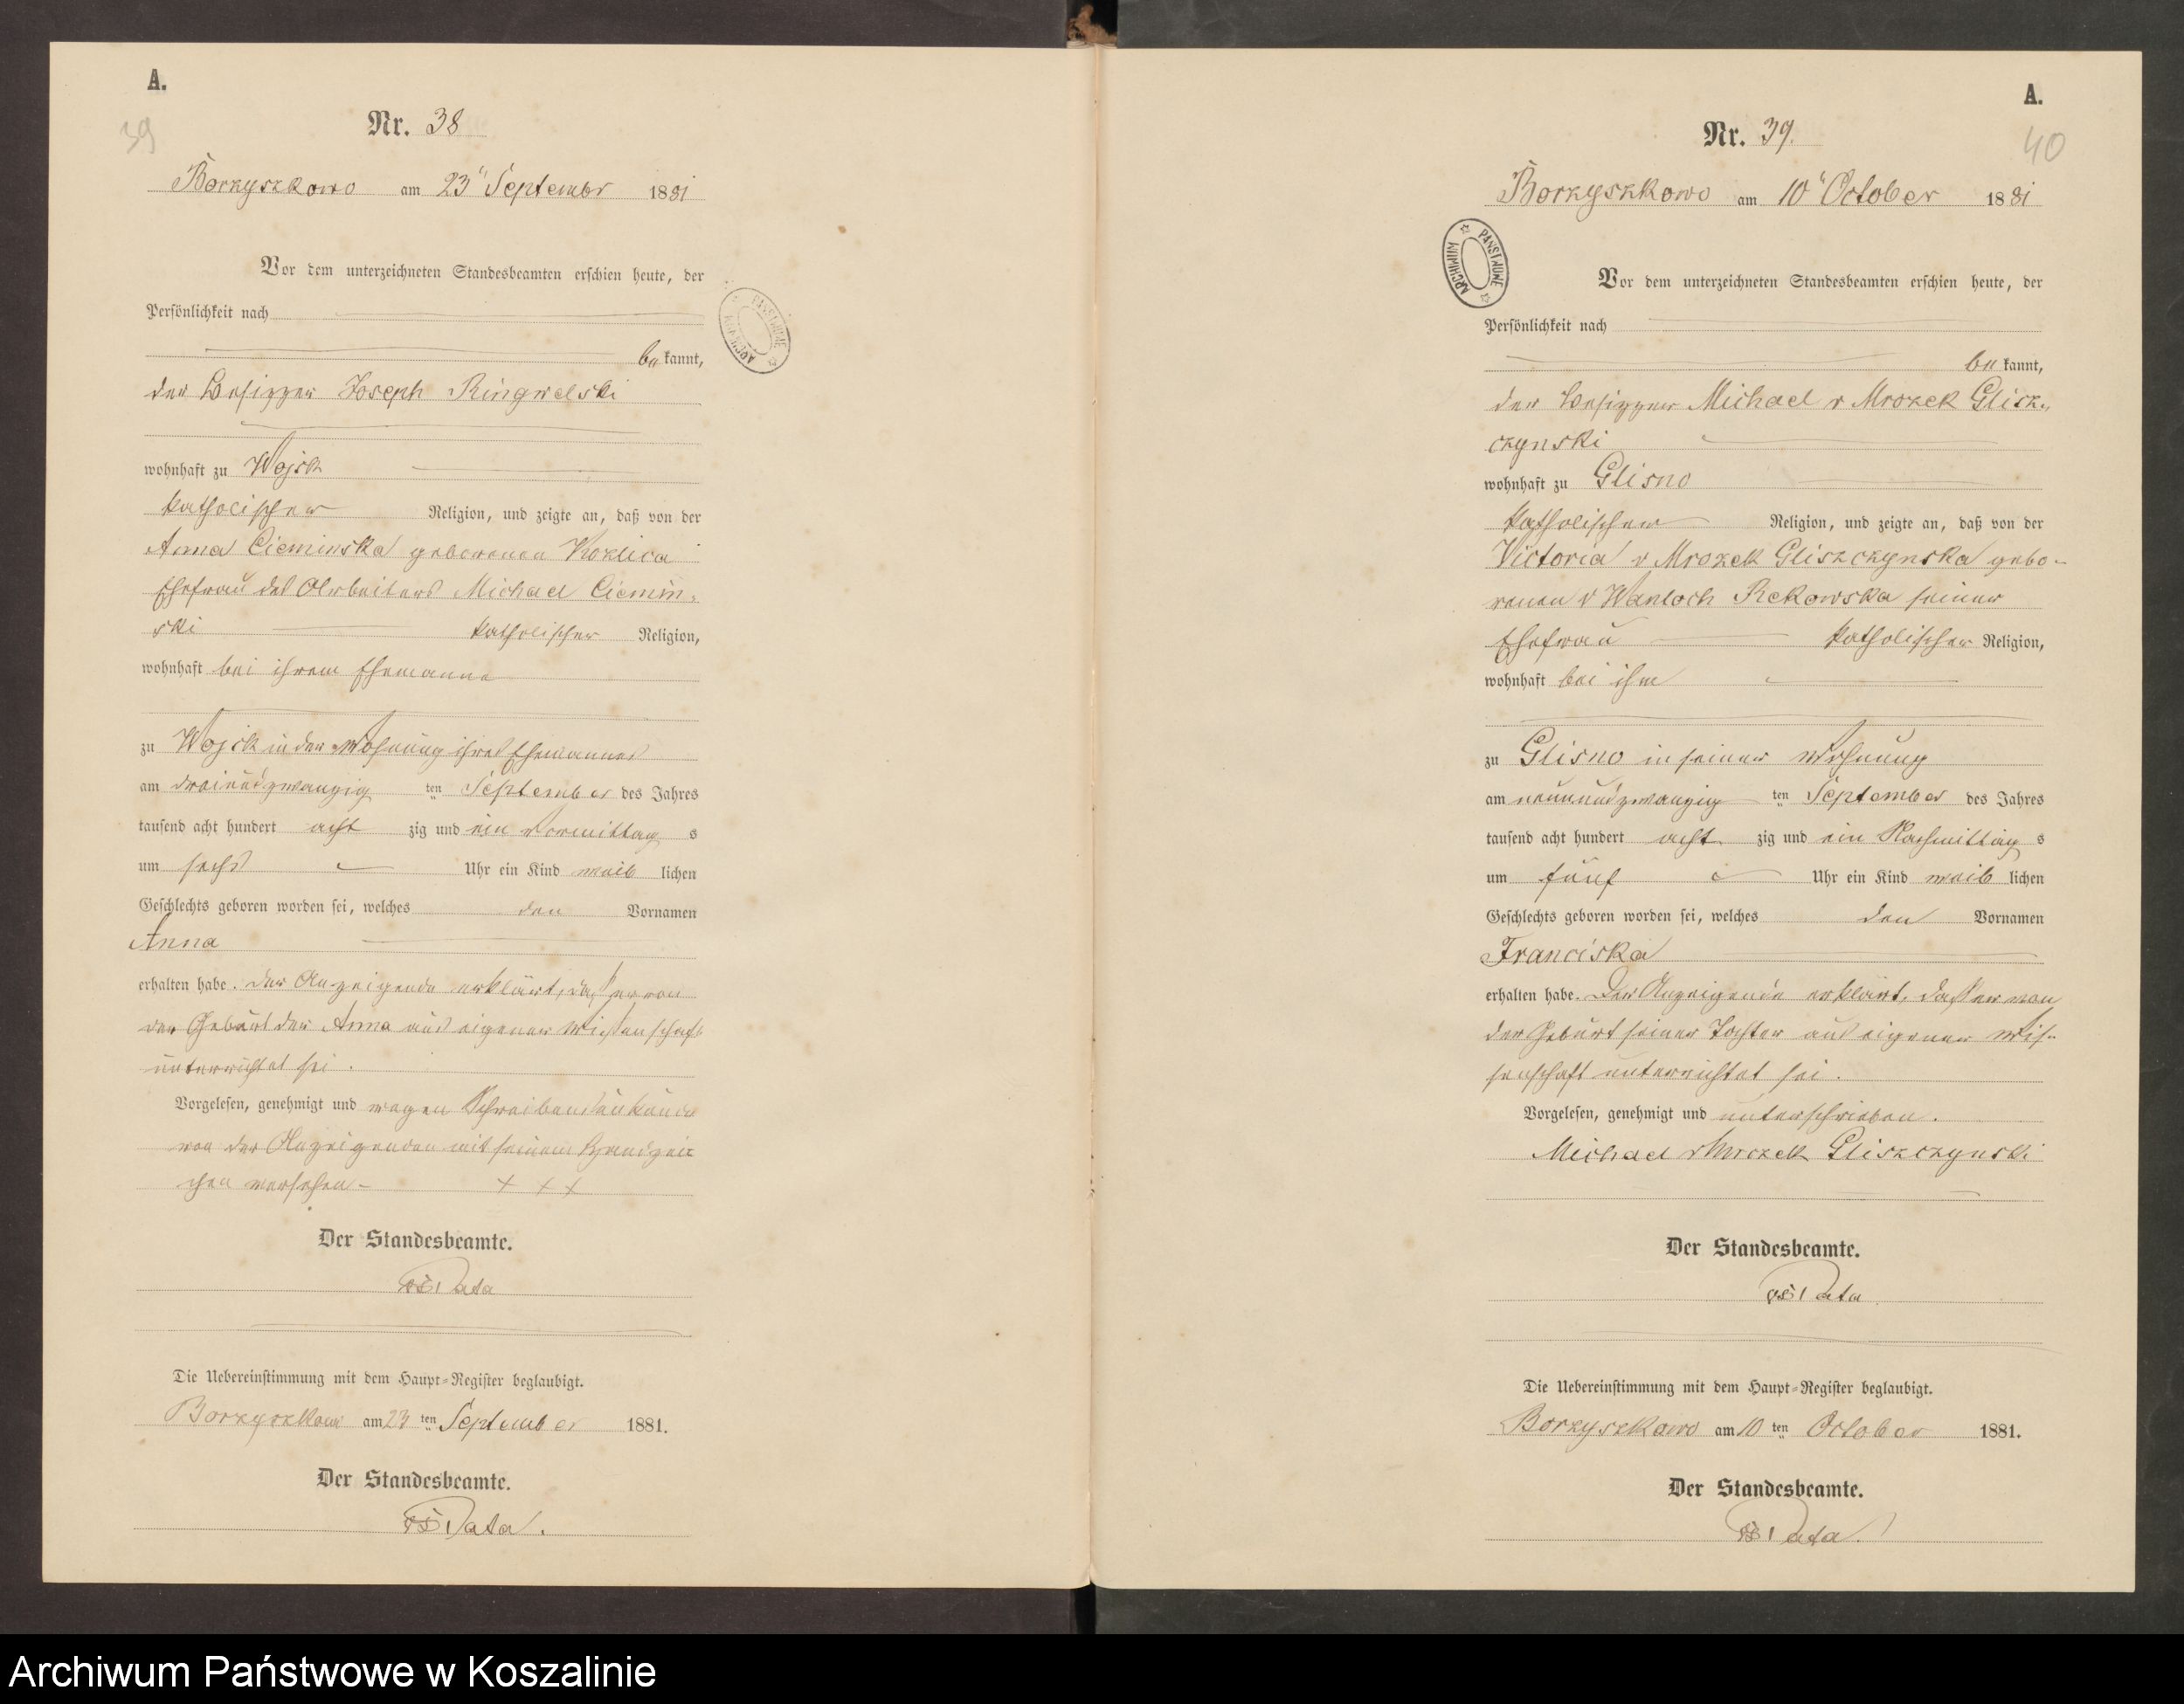 A.
39
Nr. 38
Borzyszkowo am 23" Septembr 1881
Vor dem unterzeichneten Standesbeamten erschien heute, der
Persönlichkeit nach
bekannt,
der Besitzer Joseph Ringwelski
wohnhaft zu Wojsk
katholischer Religion, und zeigte an, daß von der
Anna Cieminska geborenen Kozlica
Ehefrau des Arbeiters Michael Ciemin-
ski katholischer Religion,
wohnhaft bei ihrem Ehemanne
zu Wojsk in der Wohnung ihres Ehemannes
am dreiundzwanzig ten September des Jahres
tausend acht hundert acht zig und ein Vormittag s
um sechs Uhr ein Kind weib lichen
Geschlechts geboren worden sei, welches den Vornamen
Anna
erhalten habe. Der Anzeigende erklärt, daß er von
der Geburt der Anna aus eigener Wissenschaft
unterrichtet sei.
Vorgelesen, genehmigt und wegen Schreibensunkunde
von der Anzeigenden mit seinem Handzei
chen versehen – + + +
Der Standesbeamte.
Data
Die Uebereinstimmung mit dem Haupt-Register beglaubigt.
Borzyszkowo am 23 ten September 1881.
Der Standesbeamte.
Data.
A.
40
Nr. 39.
Borzyszkowo am 10" October 1881
ARCHIWUM PAŃSTWOWE
Vor dem unterzeichneten Standesbeamten erschien heute, der
Persönlichkeit nach
bekannt,
der Besitzer Michael v Mrozek Glisz-
czynski
wohnhaft zu Glisno
katholischer Religion, und zeigte an, daß von der
Victoria v Mrozek Gliszczynska gebo-
renen v Wantoch Rekowska seiner
Ehefrau katholischer Religion,
wohnhaft bei ihm
zu Glisno in seiner Wohnung
am neunundzwanzig ten September des Jahres
tausend acht hundert acht zig und ein Nachmittag s
um fünf Uhr ein Kind weib lichen
Geschlechts geboren worden sei, welches den Vornamen
Franciska
erhalten habe. Der Anzeigende erklärt, daß er von
der Geburt seiner Tochter aus eigener Wis-
senschaft unterrichtet sei.
Vorgelesen, genehmigt und unterschrieben.
Michael v Mrozek Gliszczynski
Der Standesbeamte.
Data
Die Uebereinstimmung mit dem Haupt-Register beglaubigt.
Borzyszkowo am 10 ten October 1881.
Der Standesbeamte.
Data.
Archiwum Państwowe w Koszalinie